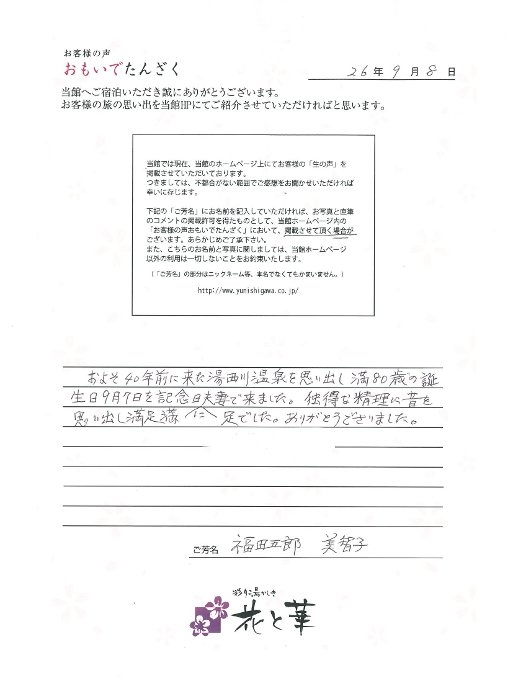 お客様の声
おもいでたんざく
26年9月8日
当館へご宿泊いただき誠にありがとうございます。
お客様の旅の思い出を当館HPにてご紹介させていただければと思います。
当館では現在、当館のホームページ上にてお客様の「生の声」を
掲載させていただいております。
つきましては、不都合がない範囲でご感想をお聞かせいただければ
幸いに存じます。
下記の「ご芳名」にお名前を記入していただければ、お写真と直筆
のコメントの掲載許可を得たものとして、当館ホームページ内の
「お客様の声おもいでたんざく」において、掲載させて頂く場合が
ございます。あらかじめご了承下さい。
また、こちらのお名前と写真に関しましては、当館ホームページ
以外の利用は一切しないことをお約束いたします。
（「ご芳名」の部分はニックネーム等、本名でなくてもかまいません。）
http://www.yunishigawa.co.jp/
およそ40年前に来た湯西川温泉を思い出し満80歳の誕
生日9月9日を記念日夫妻で来ました。独得な精理に昔を
思い出し満足満仁足でした。ありがとうございました。
ご芳名 福田五郎 美智子
花と華